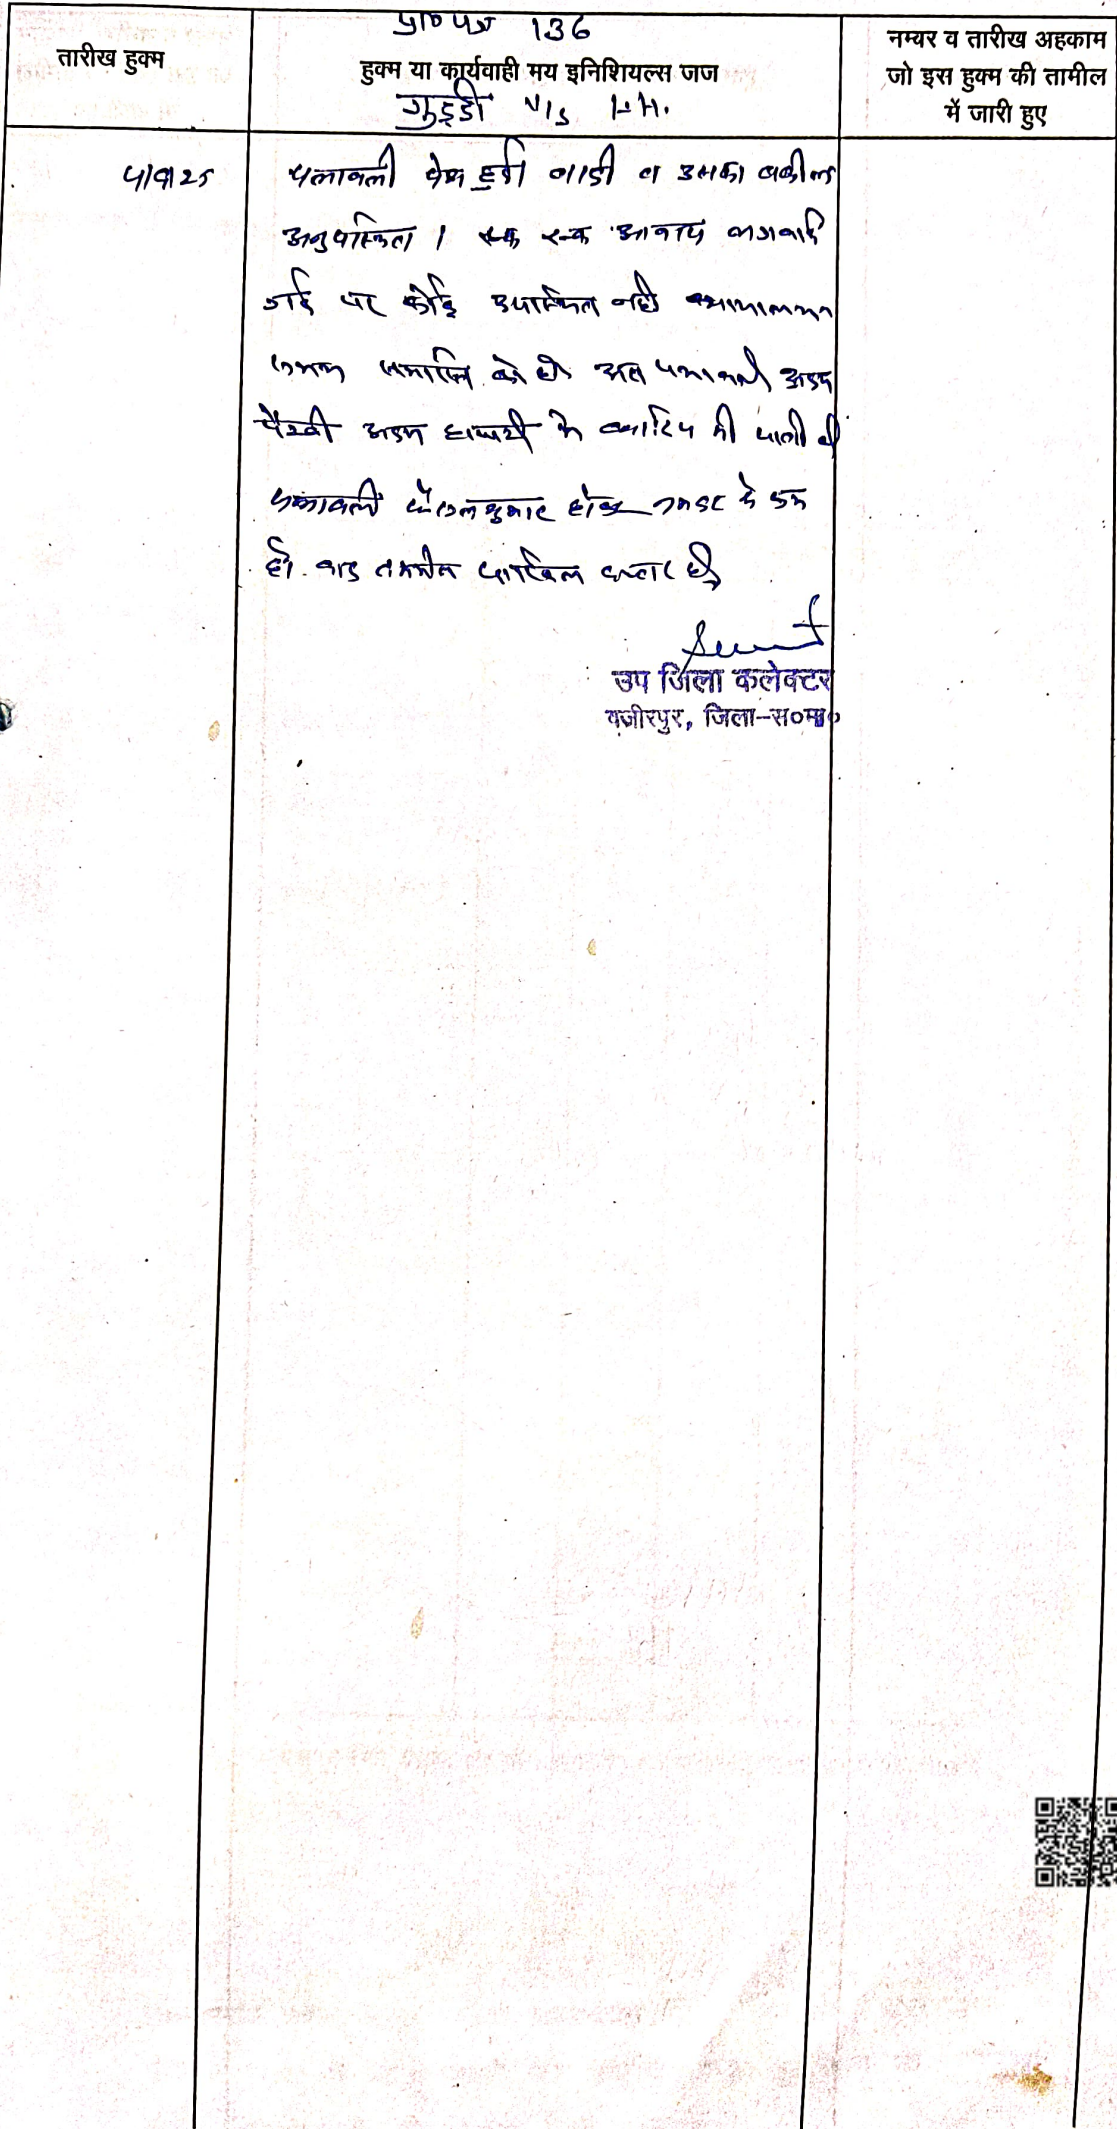 प्रा०पत्र 136
तारीख हुक्म
हुक्म या कार्यवाही मय इनिशियल्स जज
गुड्डी V/s
नम्बर व तारीख अहकाम
जो इस हुक्म की तामील
में जारी हुए
पत्रावली पेश हुई वादी व उसका वकील
अनुपस्थित । आवाज लगवाई
गई पर कोई उपस्थित नही
समय समाप्ति को है अतः पत्रावली अदम
पैरवी अदम हाजरी मे खारिज की जाती है
पत्रावली फैसलशुमार होकर नम्बर से कम
हो. बाद तकमील दाखिल दफ्तर हो
उप जिला कलेक्टर
वजीरपुर, जिला-स०मा०